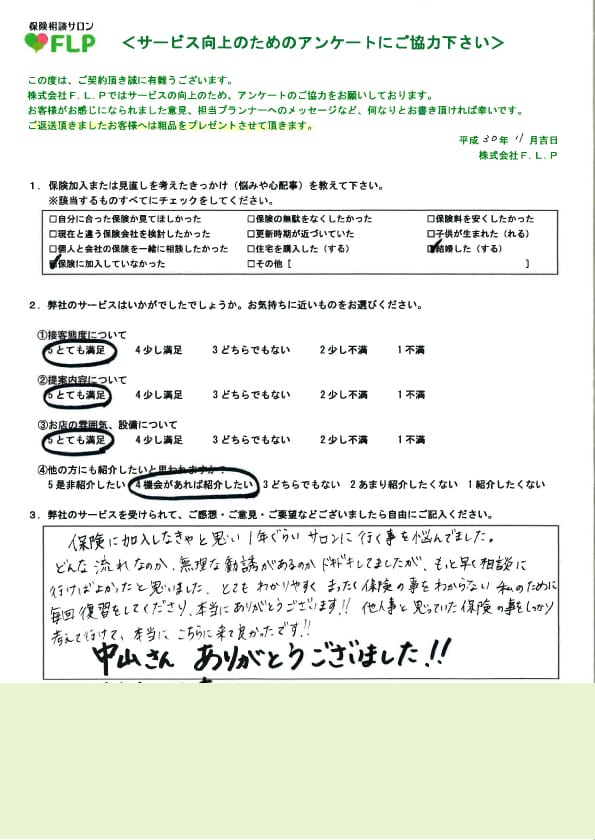 保険相談サロン
FLP
＜サービス向上のためのアンケートにご協力下さい＞
この度は、ご契約頂き誠に有難うございます。
株式会社Ｆ.Ｌ.Ｐではサービスの向上のため、アンケートのご協力をお願いしております。
お客様がお感じになられました意見、担当プランナーへのメッセージなど、何なりとお書き頂ければ幸いです。
ご返送頂きましたお客様へは粗品をプレゼントさせて頂きます。
平成 30 年 11 月吉日
株式会社Ｆ.Ｌ.Ｐ
１. 保険加入または見直しを考えたきっかけ（悩みや心配事）を教えて下さい。
※該当するものすべてにチェックをしてください。
□自分に合った保険か見てほしかった □保険の無駄をなくしたかった □保険料を安くしたかった
□現在と違う保険会社を検討したかった □更新時期が近づいていた □子供が生まれた（れる）
□個人と会社の保険を一緒に相談したかった □住宅を購入した（する） ☑結婚した（する）
☑保険に加入していなかった □その他［ ］
２. 弊社のサービスはいかがでしたでしょうか。お気持ちに近いものをお選びください。
①接客態度について
５とても満足 ４少し満足 ３どちらでもない ２少し不満 １不満
②提案内容について
５とても満足 ４少し満足 ３どちらでもない ２少し不満 １不満
③お店の雰囲気、設備について
５とても満足 ４少し満足 ３どちらでもない ２少し不満 １不満
④他の方にも紹介したいと思われますか？
５是非紹介したい ４機会があれば紹介したい ３どちらでもない ２あまり紹介したくない １紹介したくない
３. 弊社のサービスを受けられて、ご感想・ご意見・ご要望などございましたら自由にご記入ください。
保険に加入しなきゃと思い1年ぐらいサロンに行く事を悩んでました。
どんな流れなのか、無理な勧誘があるのかドキドキしてましたが、もっと早く相談に
行けばよかったと思いました。とてもわかりやすくまったく保険の事をわからない私のために
毎回復習をしてくださり、本当にありがとうございます!! 他人事と思っていた保険の事をしっかり
考えて行けて、本当にこちらに来て良かったです!!
中山さん ありがとうございました!!